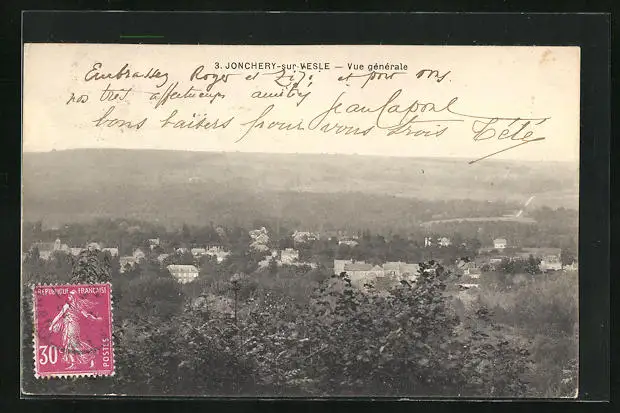 3. JONCHERY-sur-VESLE — Vue générale
Embrassez Roger et Zizi et pour vous
nos très affectueuses amitiés
Jean Laporte
bons baisers pour vous trois Tété
REPUBLIQUE FRANÇAISE
30c
POSTES